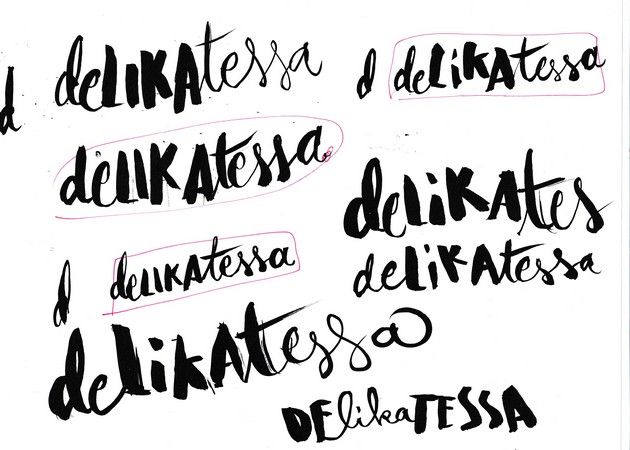 d
deLIKAtessa
d deLiKAtessa
deLIKAtessa
deLiKAtes
d deLIKAtessa
deLiKAtessa
deLikAtessa
DElikaTESSA